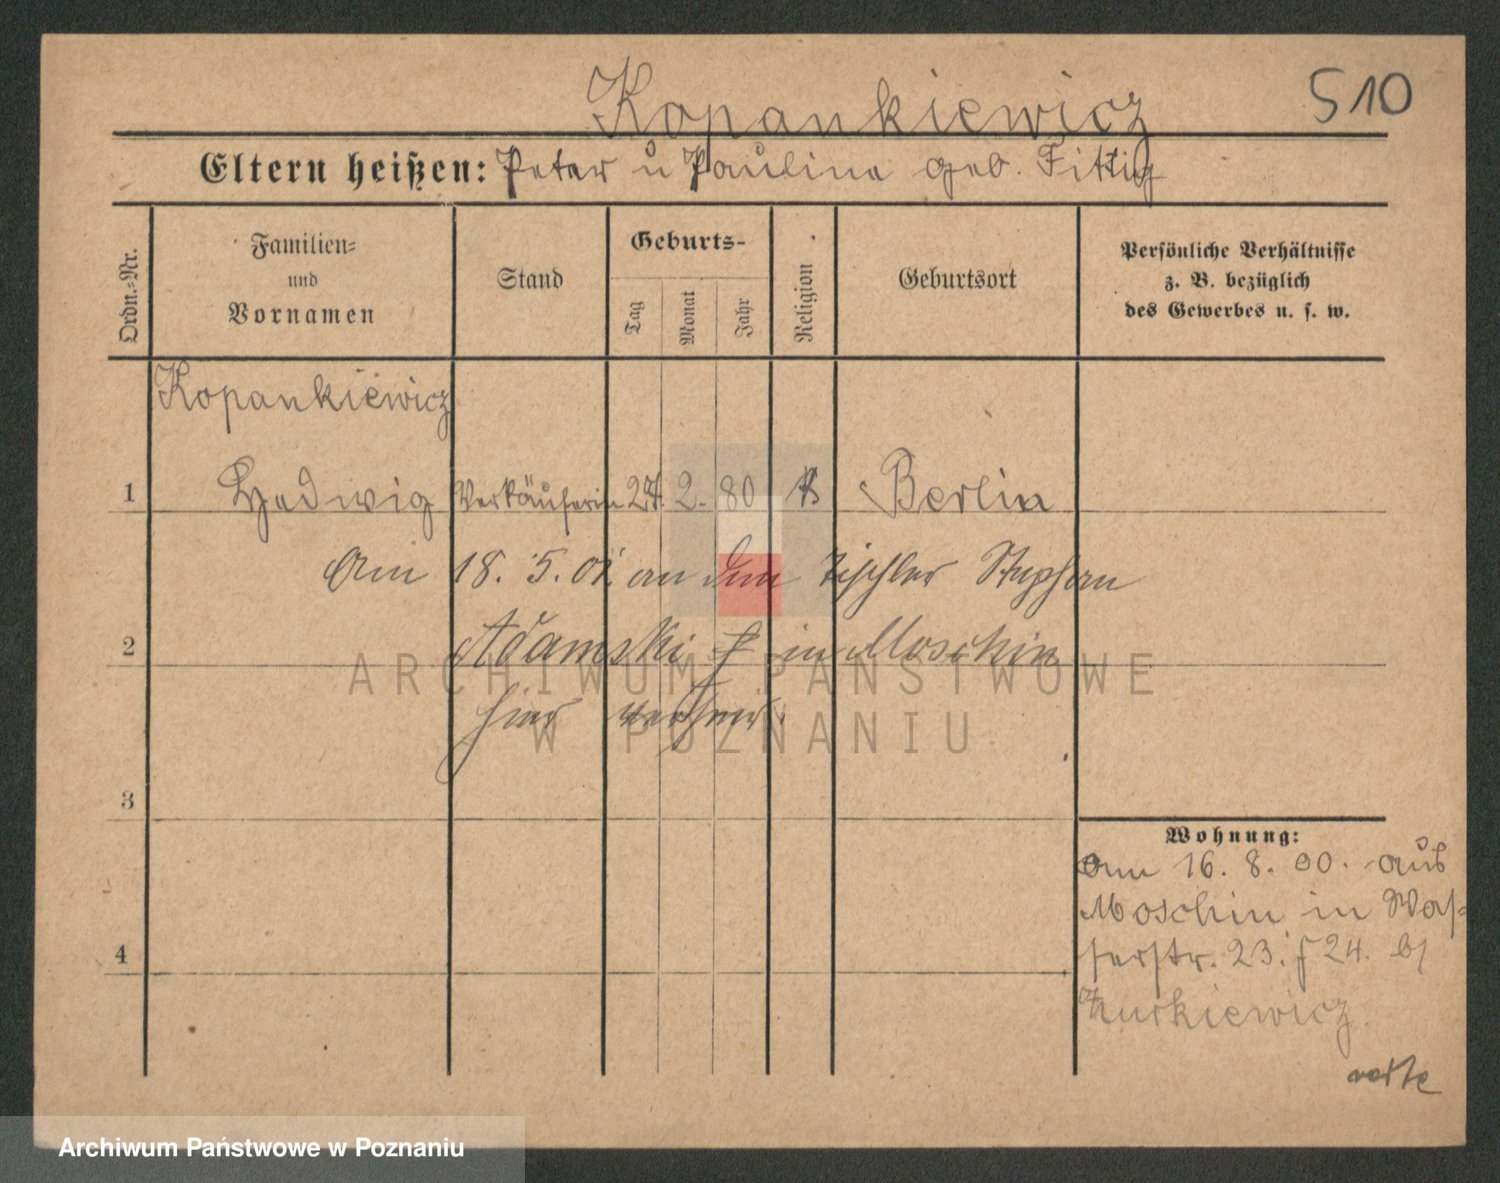 Kopankiewicz
510
Eltern heißen: Peter u Paulina geb. Fittig
Ordn.-Nr.
Familien-
und
Vornamen
Stand
Geburts-
Tag
Monat
Jahr
Religion
Geburtsort
Persönliche Verhältnisse
z. B. bezüglich
des Gewerbes u. s. w.
Kopankiewicz
1 Hedwig Verkäuferin 27. 2. 80 Berlin
Am 18. 5. 01. an den Tischler Stephan
2 Adamski in Moschin
hier verheir.
3
Wohnung:
Am 16. 8. 00. aus
Moschin in Was=
serstr. 23. 24. bj
4
Zurkiewicz
ARCHIWUM PAŃSTWOWE
W POZNANIU
Archiwum Państwowe w Poznaniu